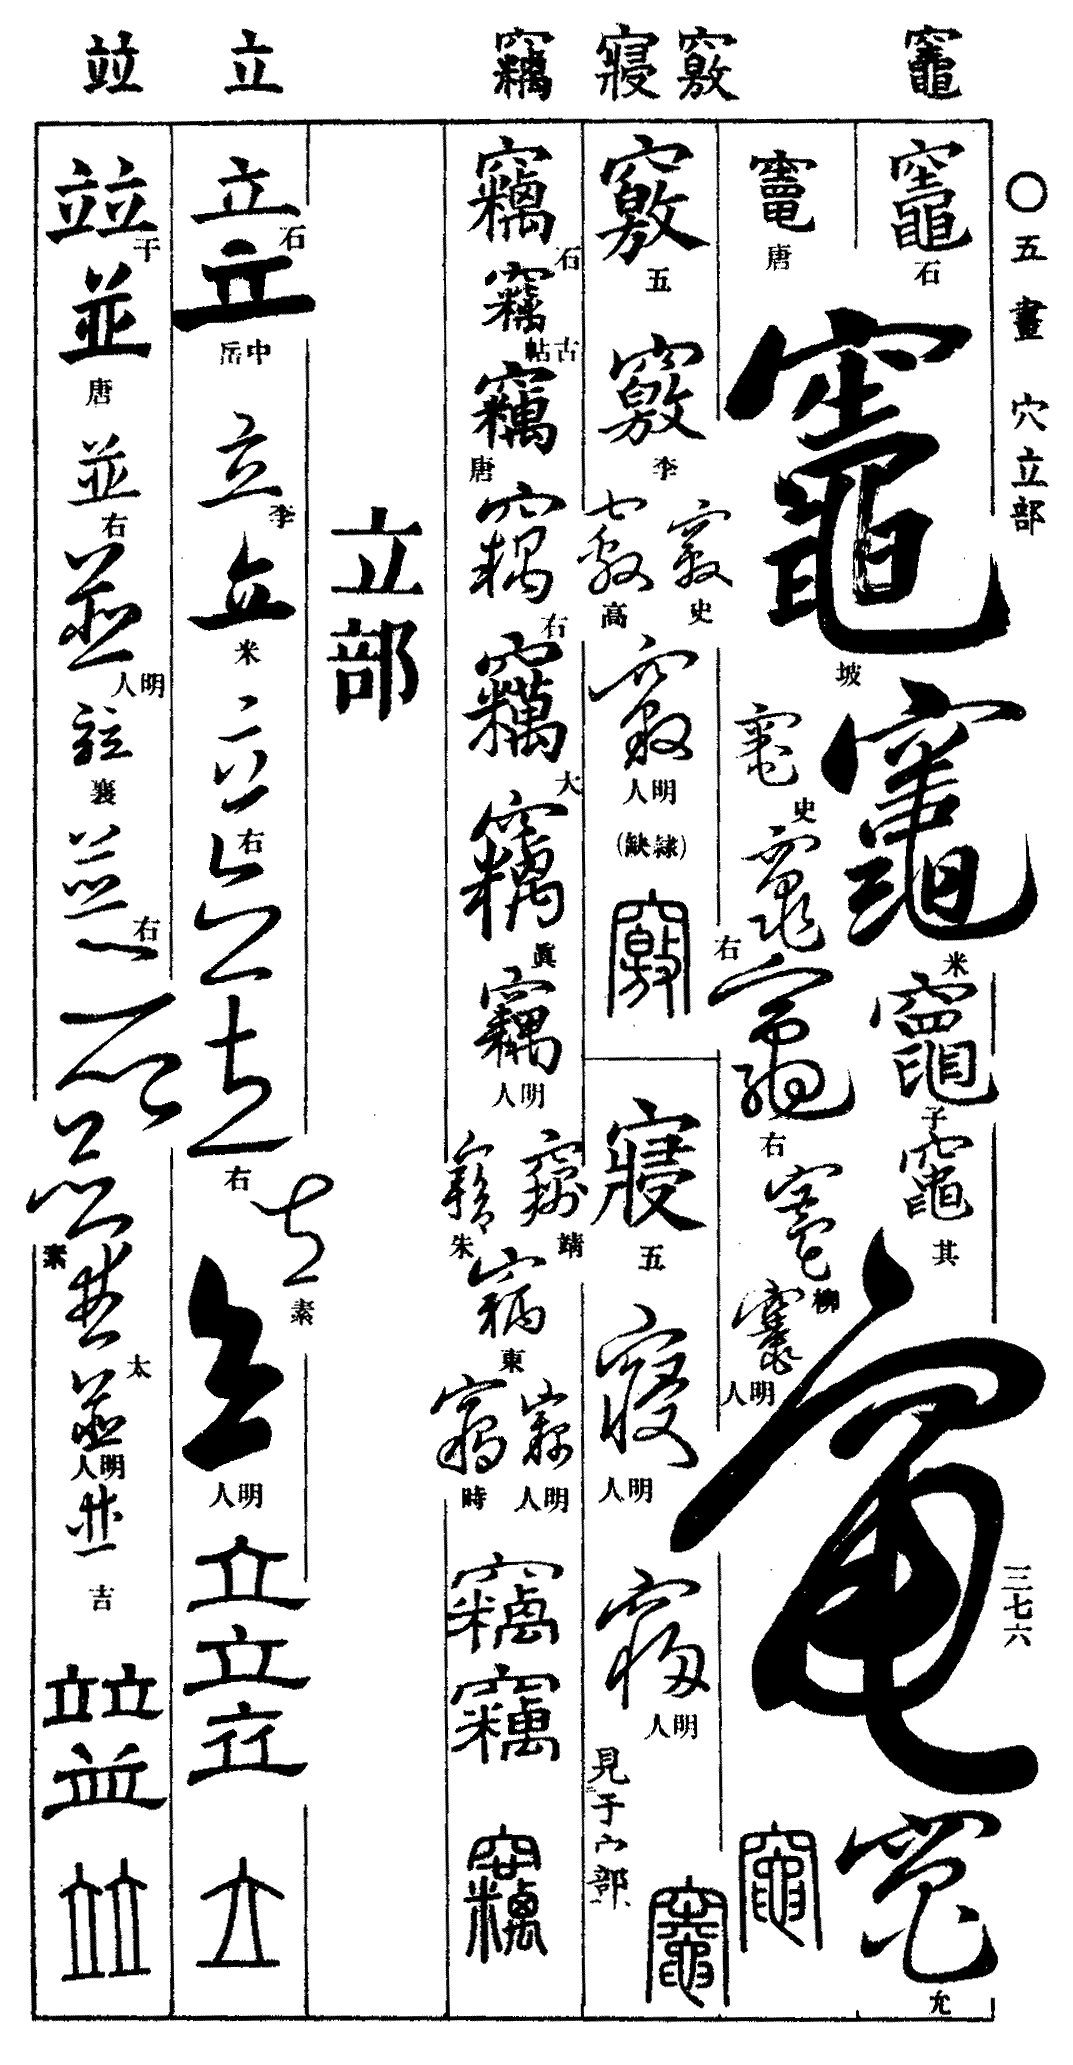 竈
竅
寢
竊
立
竝
〇五畫 穴立部
三七六
竈石
竈坡
竈米
竈子
竈其
竈
竈允
竈唐
竈史
竈右
竈右
竈柳
竈明人
竈
竈
竅五
竅李
竅史
竅高
竅明人
(隸缺)
竅
寢五
寢明人
寢明人
見于宀部
竊石
竊古帖
竊唐
竊右
竊大
竊眞
竊明人
竊靖
竊朱
竊東
竊明人
竊時
竊
竊
竊
立部
立石
立中岳
立李
立米
立右
立
立右
立素
立明人
立
立
立
立
竝干
並唐
並右
並明人
竝襄
並右
並
並素
並太
並明人
並吉
竝
並
竝